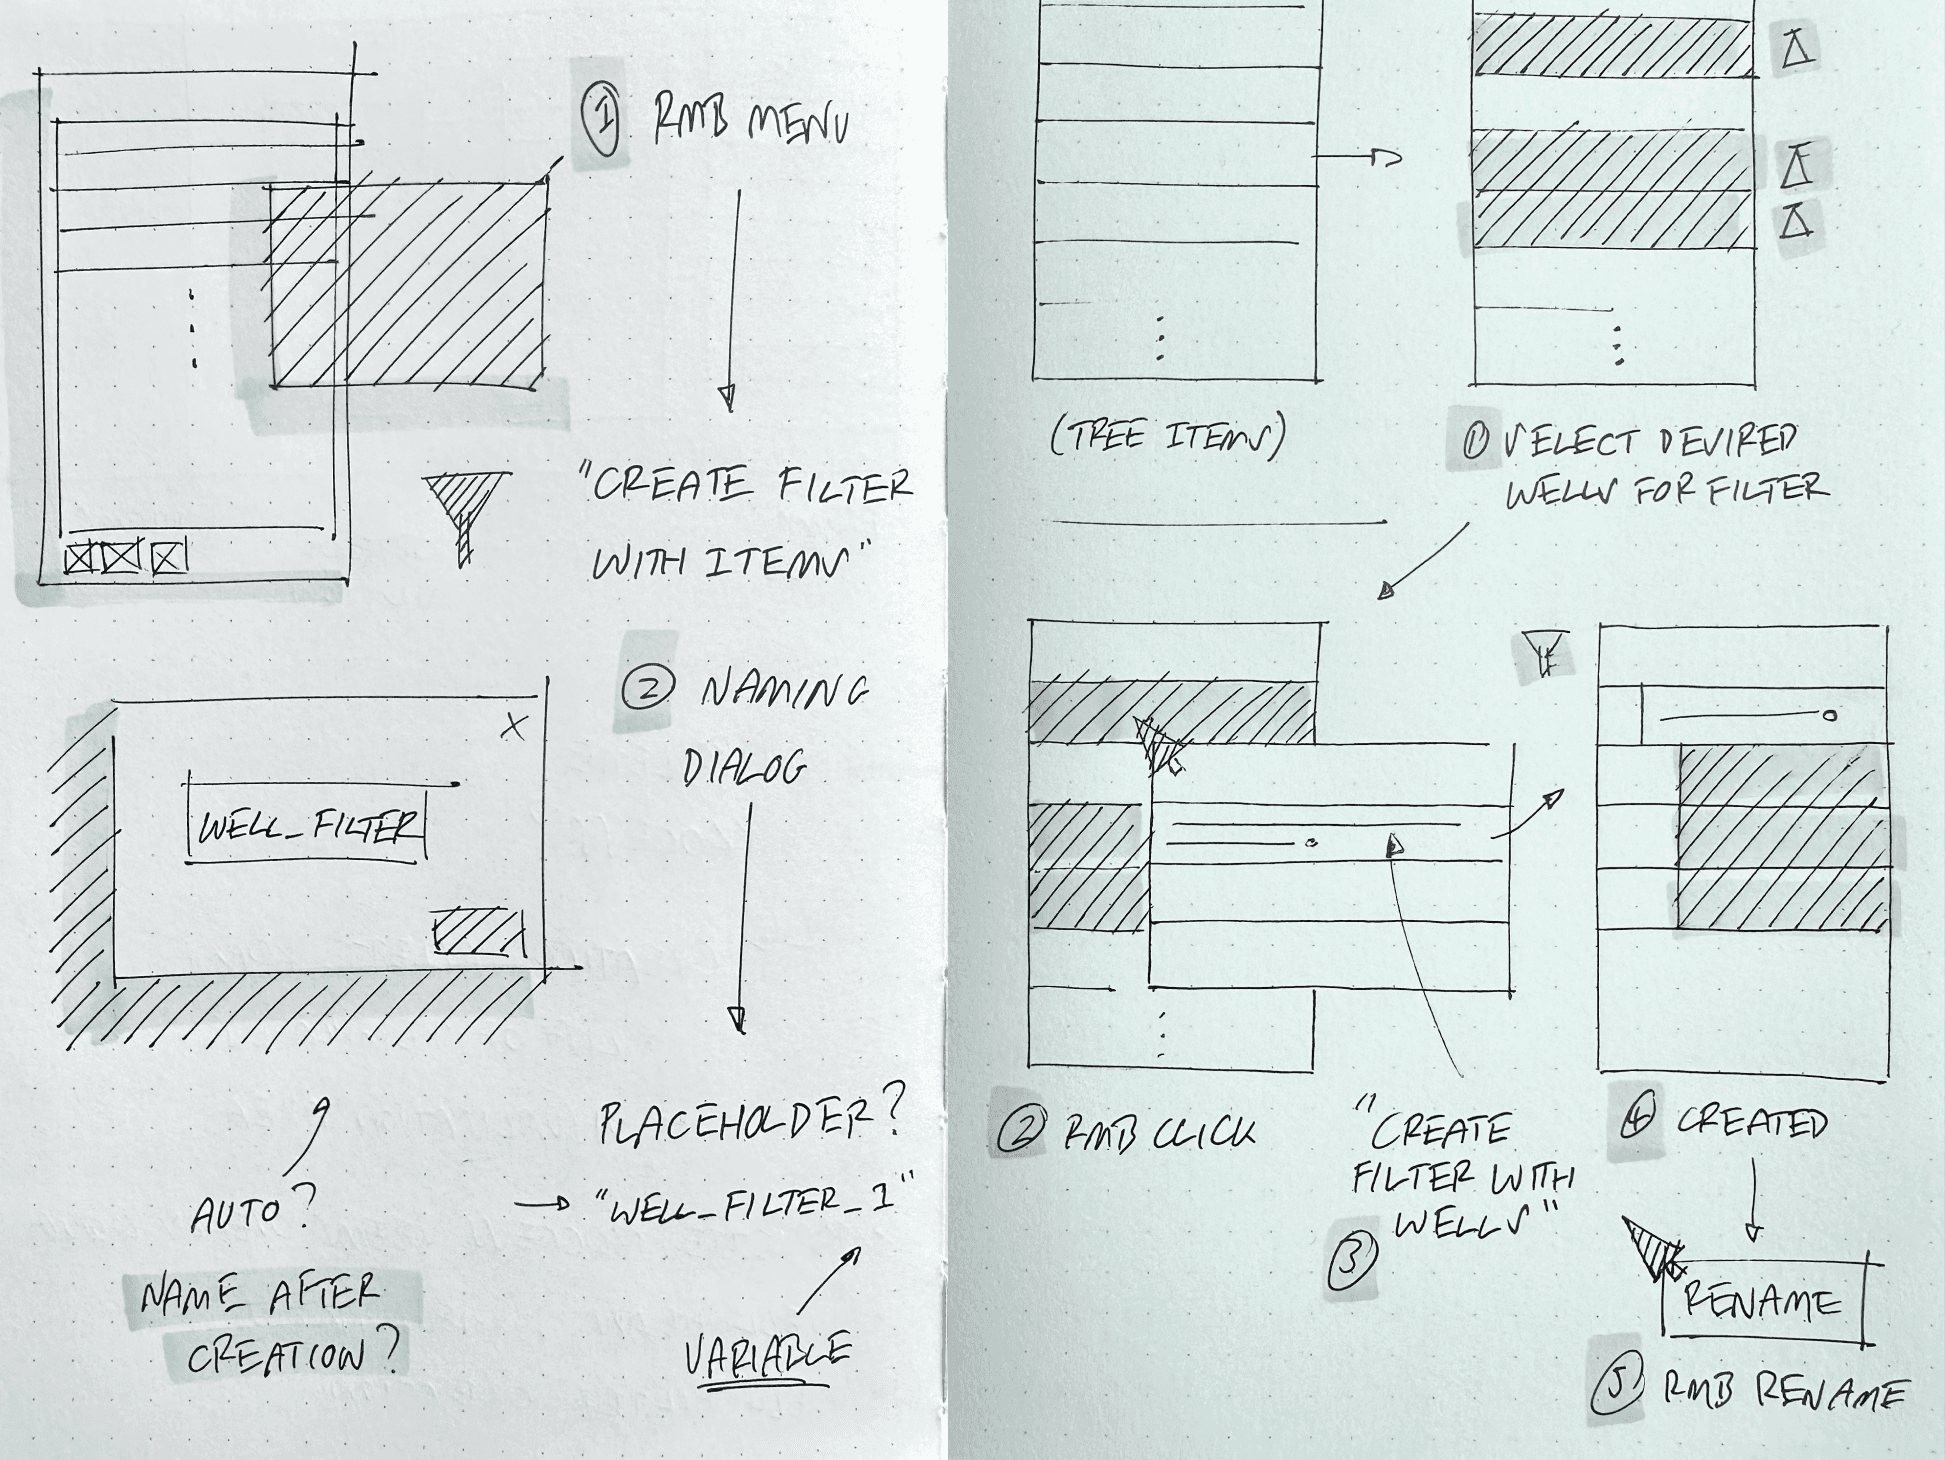 ① RMB MENU
"CREATE FILTER
WITH ITEMS"
② NAMING
DIALOG
X
WELL_FILTER
PLACEHOLDER?
AUTO?
→ "WELL_FILTER_1"
NAME AFTER
CREATION?
VARIABLE
(TREE ITEMS)
① SELECT DESIRED
WELLS FOR FILTER
② RMB CLICK
"CREATE
FILTER WITH
WELLS"
③
④ CREATED
RENAME
⑤ RMB RENAME